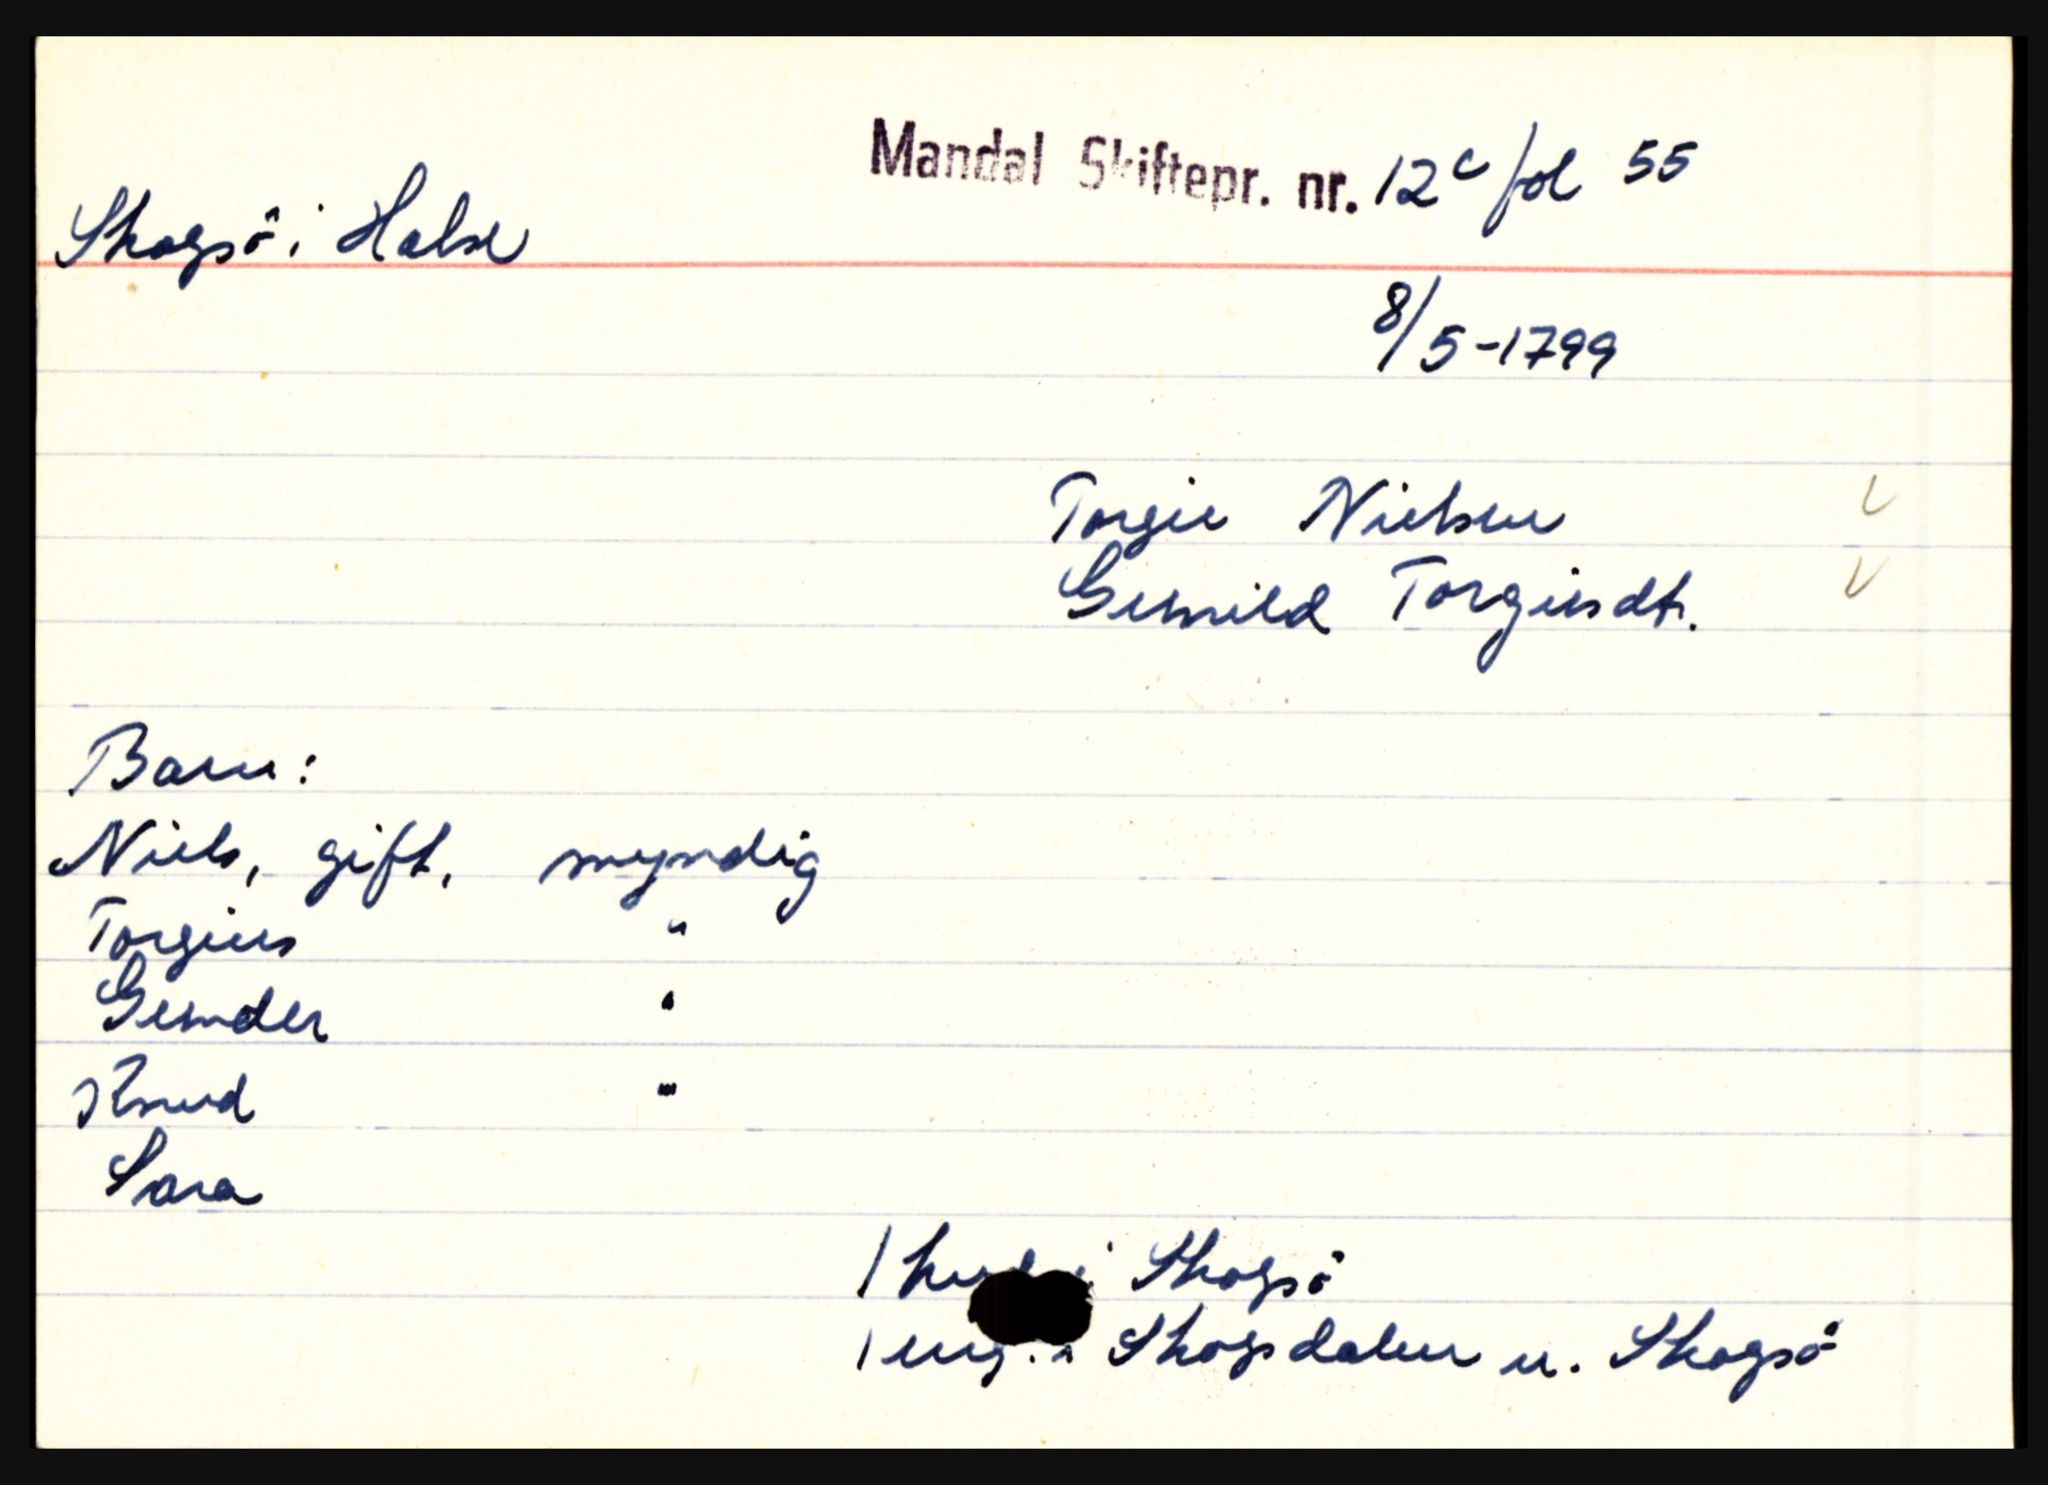 Mandal Skiftepr. nr. 12c fol 55
Skogsö i Halse
8/5-1799
Torgie Nielsen
Gunild Torgiusdtr.
Barn:
Niels, gift, myndig
Torgius "
Gunder "
Knud "
Sara
1 i Skogsö
1 eng. i Skogsdalen u. Skogsö